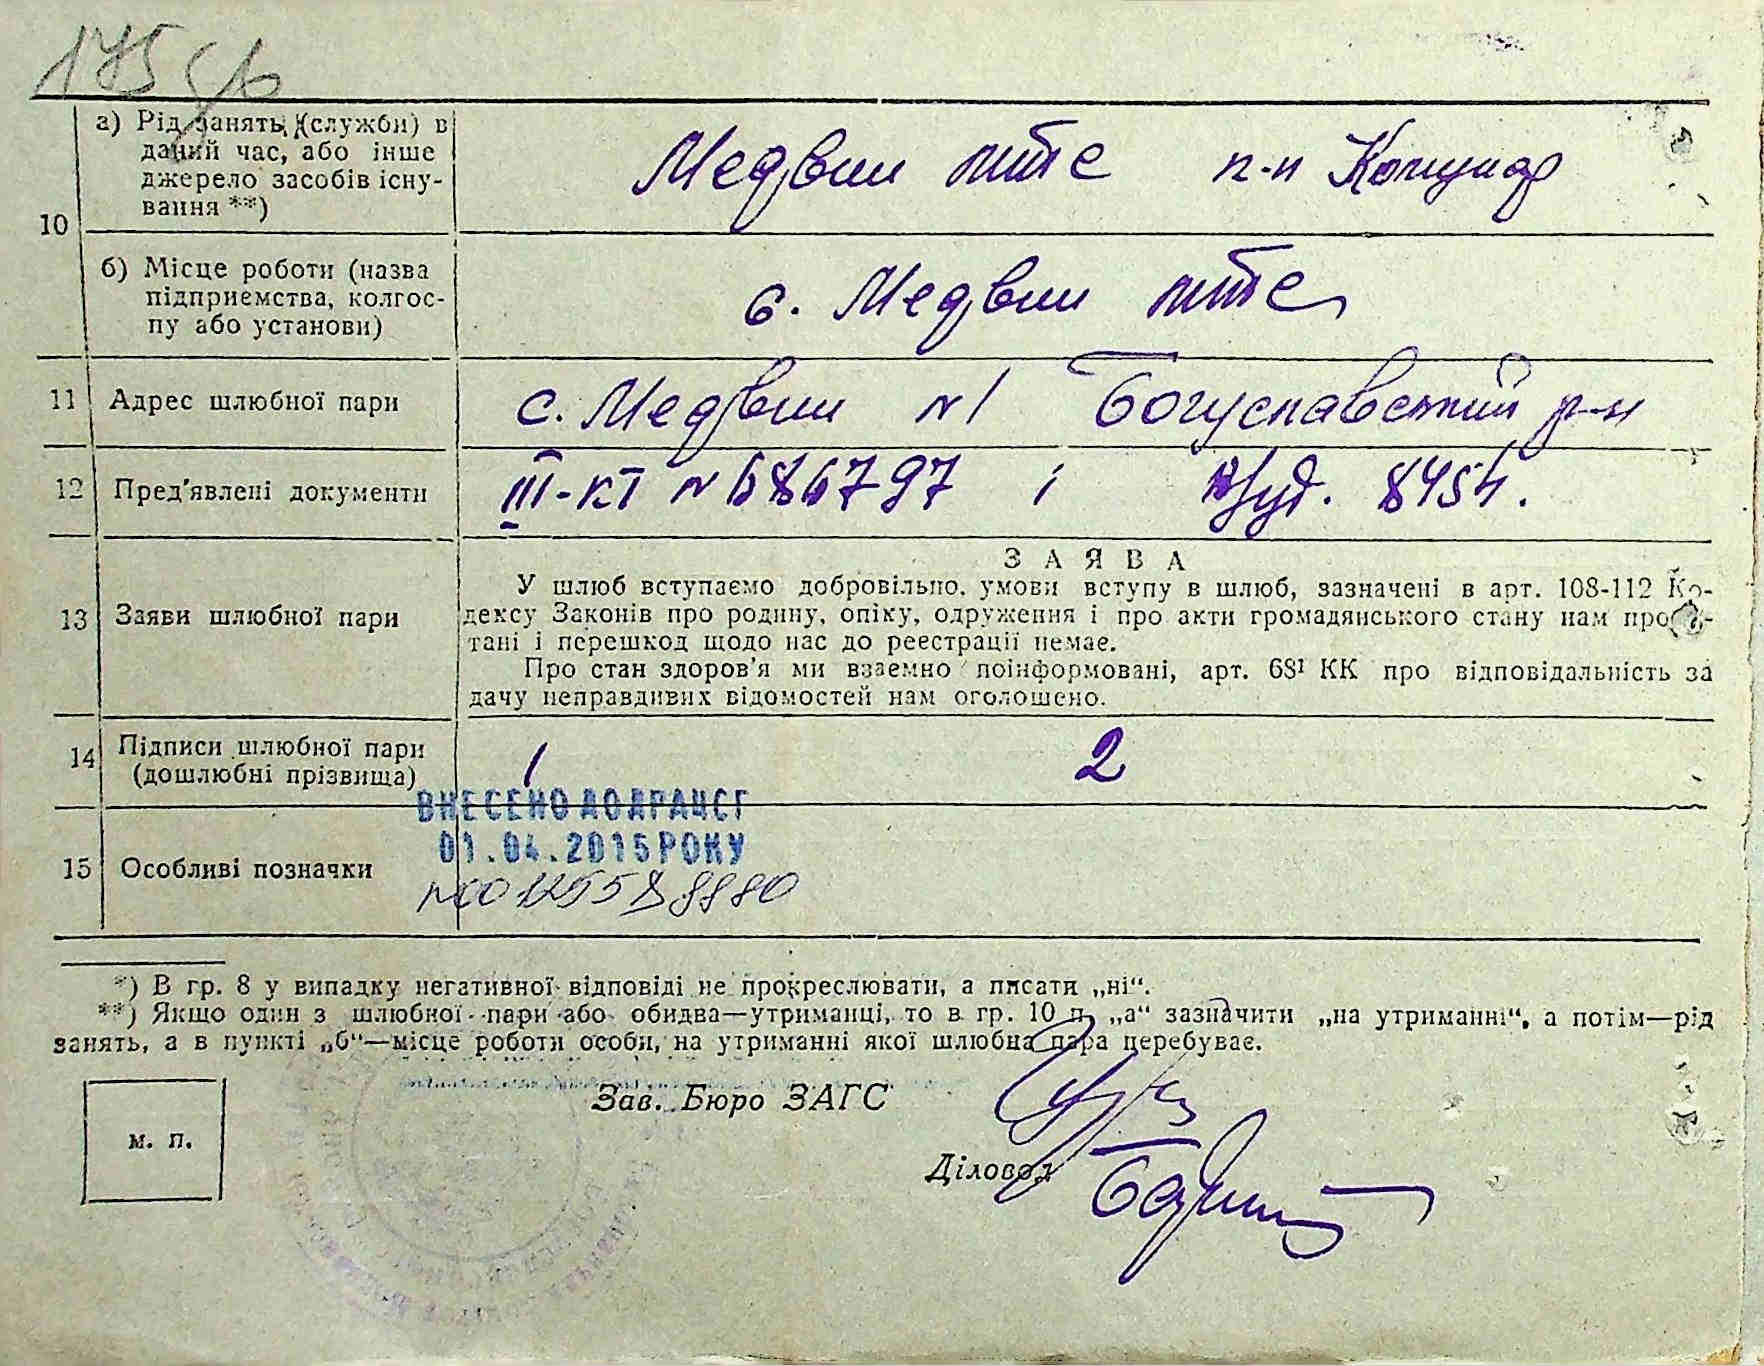 175
10
а) Рід занять (служби) в
даний час, або інше
джерело засобів існу-
вання **)
Медвин мтс
б) Місце роботи (назва
підприємства, колгос-
пу або установи)
с. Медвин мтс
11 Адрес шлюбної пари
с. Медвин №1 Богуславський р-н
12 Пред'явлені документи
III-КТ № 686797 і посв. 8454.
13 Заяви шлюбної пари
ЗАЯВА
У шлюб вступаємо добровільно, умови вступу в шлюб, зазначені в арт. 108-112 Ко-
дексу Законів про родину, опіку, одруження і про акти громадянського стану нам прочи-
тані і перешкод щодо нас до реєстрації немає.
Про стан здоров'я ми взаємно поінформовані, арт. 68¹ КК про відповідальність за
дачу неправдивих відомостей нам оголошено.
14 Підписи шлюбної пари
(дошлюбні прізвища)
1 2
ВНЕСЕНО ДО ДРАЦСГ
01.04.2015 РОКУ
15 Особливі позначки
*) В гр. 8 у випадку негативної відповіді не прокреслювати, а писати „ні“.
**) Якщо один з шлюбної пари або обидва—утриманці, то в гр. 10 п. „а“ зазначити „на утриманні“, а потім—рід
занять, а в пункті „б“—місце роботи особи, на утриманні якої шлюбна пара перебуває.
Зав. Бюро ЗАГС
м. п.
Діловод